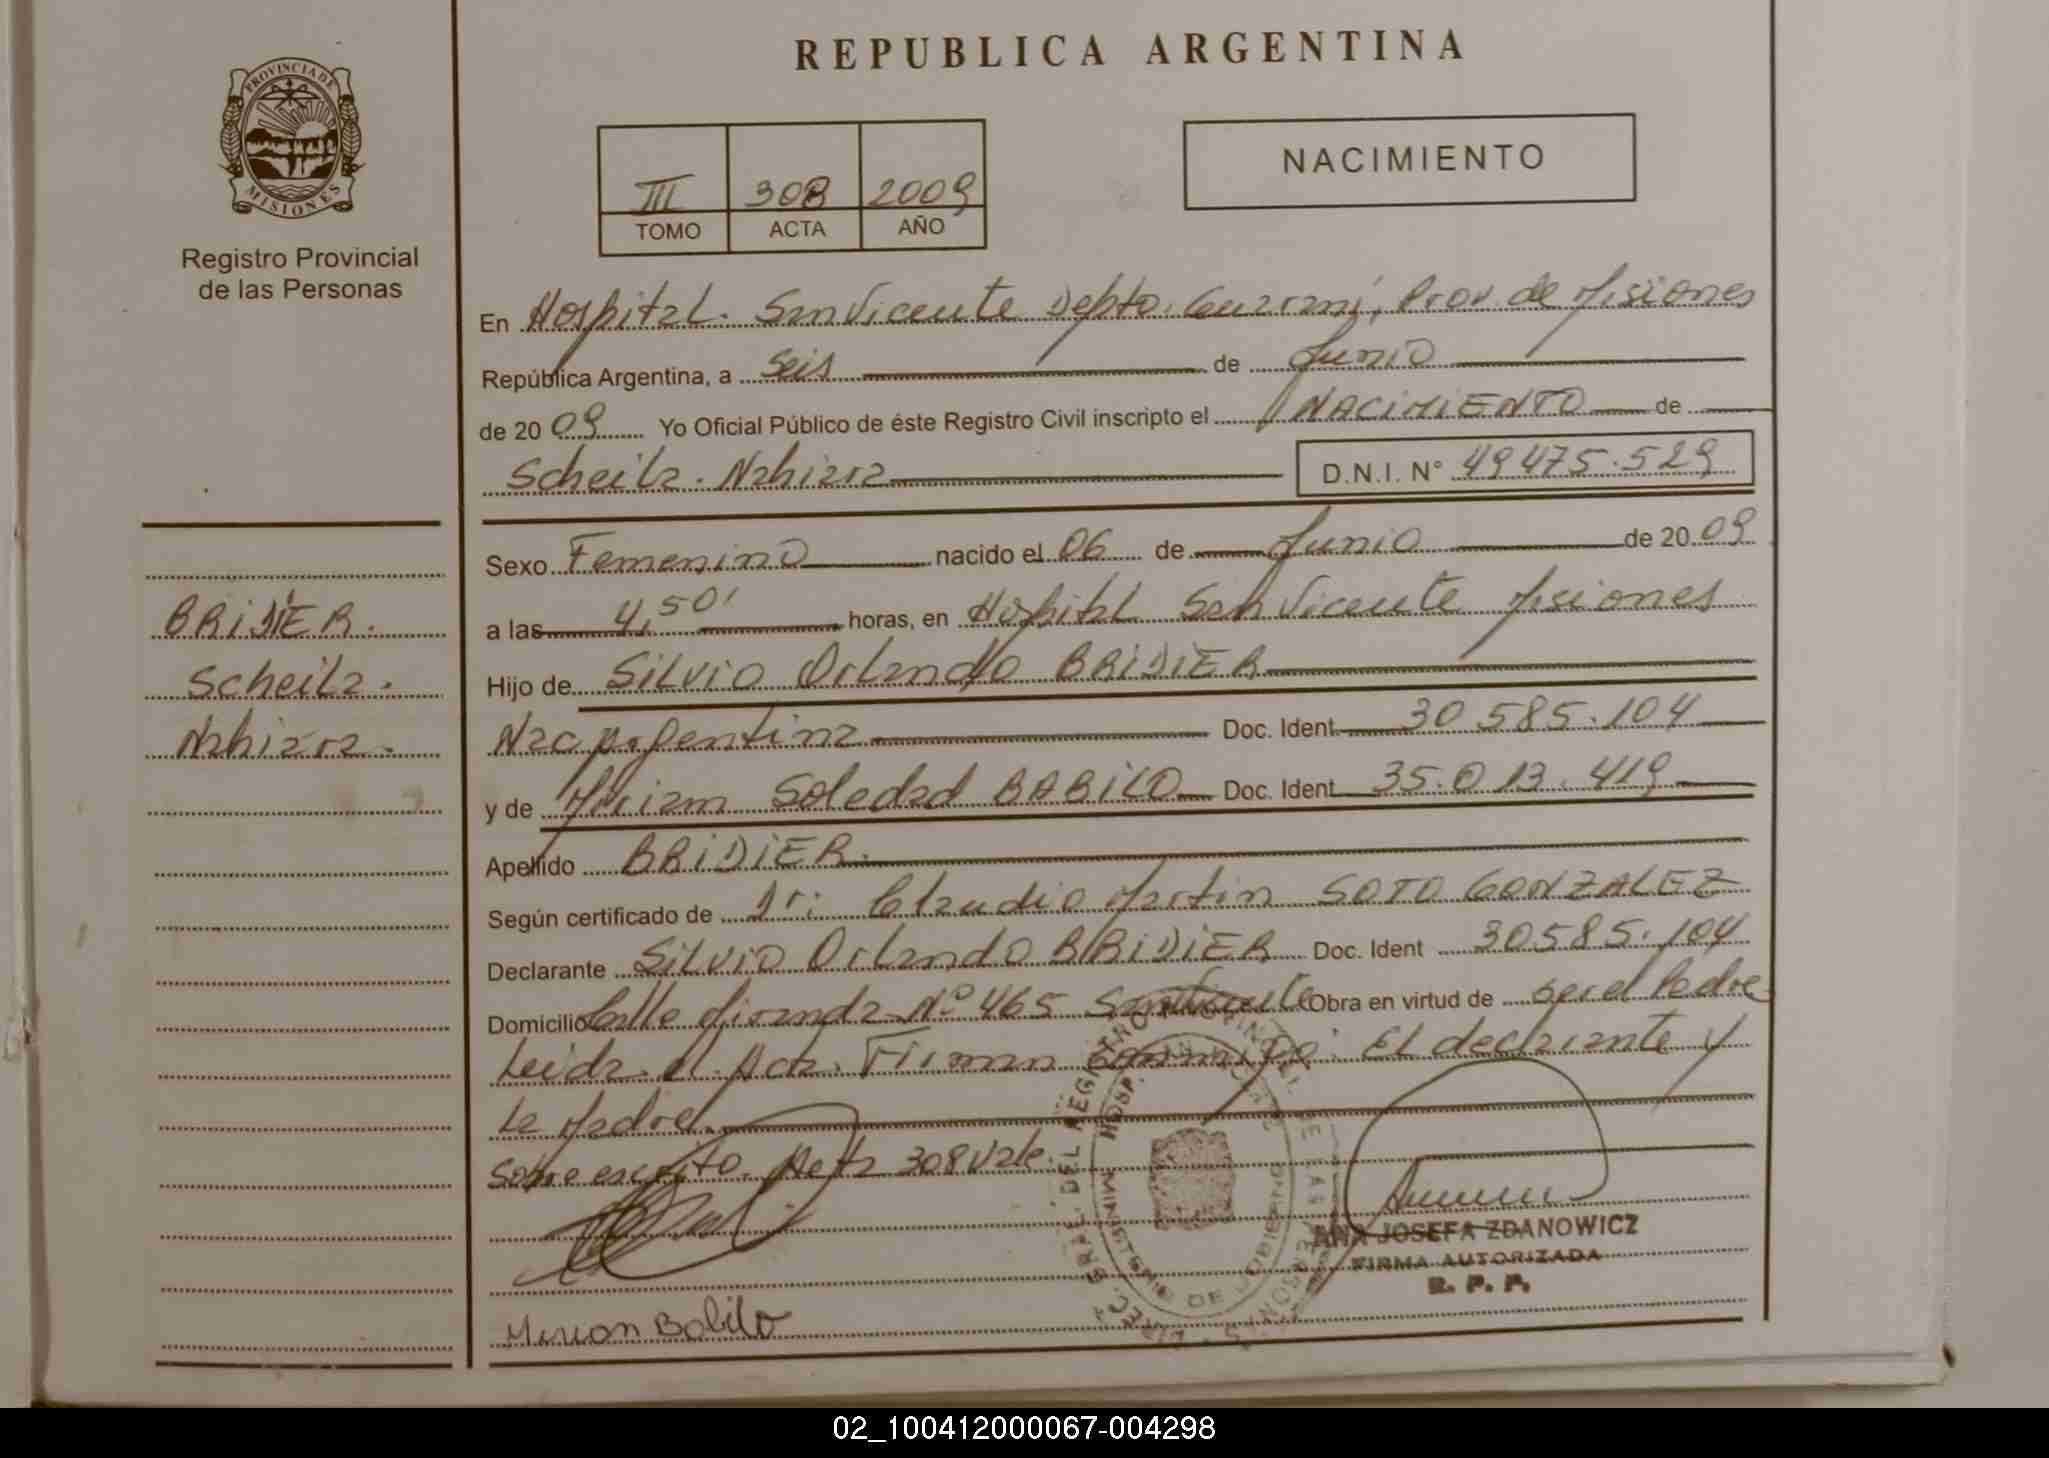 REPUBLICA ARGENTINA
PROVINCIA DE
MISIONES
Registro Provincial
de las Personas
III 308 2009
TOMO ACTA AÑO
NACIMIENTO
En Hospital. San Vicente Depto. Guaraní, Prov. de Misiones
República Argentina, a Seis de Junio
de 2009 Yo Oficial Público de éste Registro Civil inscripto el NACIMIENTO de
Scheila. Nahiara D.N.I. N° 49475.529
Sexo Femenino nacido el 06 de Junio de 2009
a las 4,50' horas, en Hospital San Vicente Misiones
Hijo de Silvio Orlando BRIDIER
Nac Argentina Doc. Ident 30.585.104
y de Miriam Soledad BABILO Doc. Ident 35.013.419
Apellido BRIDIER.
Según certificado de Dr: Claudio Martin SOTO GONZALEZ
Declarante Silvio Orlando BRIDIER Doc. Ident 30585.104
Domicilio Calle Miranda N° 465 San Vicente Obra en virtud de ser el Padre
Leida el Acta. Firman Conmigo: El declarante y
La Madre.
Sobre escrito. Acta 308 Vale.
BRIDIER.
Scheila.
Nahiara.
ANA JOSEFA ZDANOWICZ
FIRMA AUTORIZADA
R. P. P.
MINISTERIO DE GOBIERNO
02_100412000067-004298